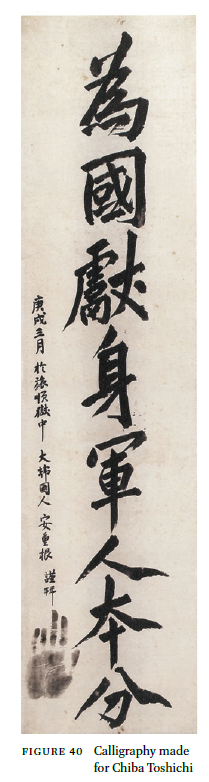 為國獻身軍人本分
庚戌三月 於旅順獄中 大韓國人 安重根 謹拜
FIGURE 40 Calligraphy made
for Chiba Toshichi